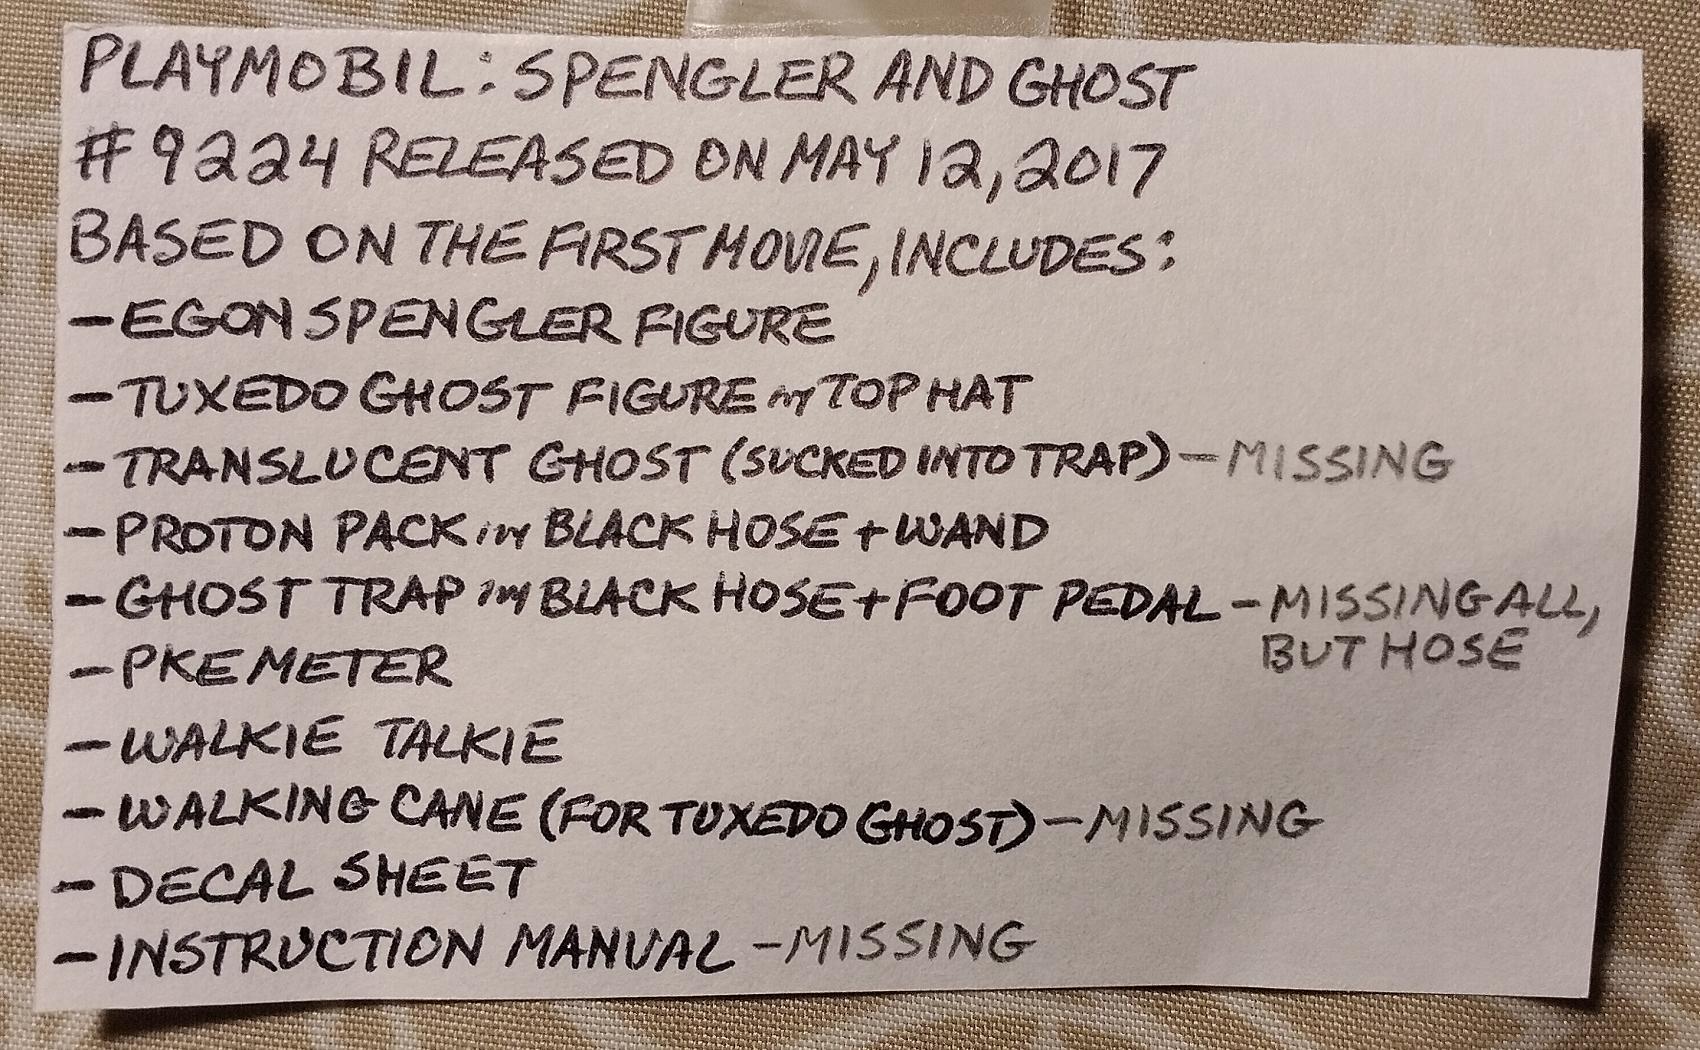 PLAYMOBIL: SPENGLER AND GHOST
#9224 RELEASED ON MAY 12, 2017
BASED ON THE FIRST MOVIE, INCLUDES:
- EGON SPENGLER FIGURE
- TUXEDO GHOST FIGURE w/ TOP HAT
- TRANSLUCENT GHOST (SUCKED INTO TRAP) - MISSING
- PROTON PACK w/ BLACK HOSE + WAND
- GHOST TRAP w/ BLACK HOSE + FOOT PEDAL - MISSING ALL,
BUT HOSE
- PKE METER
- WALKIE TALKIE
- WALKING CANE (FOR TUXEDO GHOST) - MISSING
- DECAL SHEET
- INSTRUCTION MANUAL - MISSING